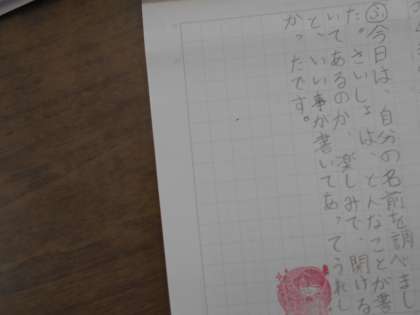 ふ今日は、自分の名前を調べまし
た。さいしょは、どんなことが書
いてあるのか、楽しみで、開ける
と、いい事が書いてあってうれし
かったです。